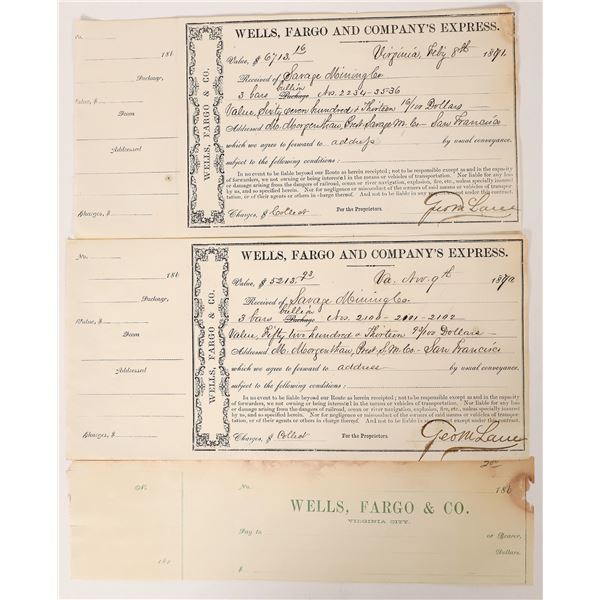 No.
186
Package,
Value, $
From
Addressed
Charges, $
WELLS, FARGO & CO.
WELLS, FARGO AND COMPANY'S EXPRESS.
Value, $ 6713.16 Virginia, Feby 8th 1871
Received of Savage Mining Co
bullion
3 bars Package Nos. 2234-35-36
Value Sixty seven hundred & Thirteen 16/100 Dollars
Addressed M. Morgenthau, Prest Savage M. Co - San Francisco
which we agree to forward to address by usual conveyance,
subject to the following conditions:
In no event to be liable beyond our Route as herein receipted; not to be responsible except as and in the capacity
of forwarders, we not owning or being interested in the means or vehicles of transportation; nor liable for any loss
or damage arising from the dangers of railroad, ocean or river navigation, explosion, fire, etc., unless specially insured
by us, and so specified herein. Nor for negligence or misconduct of the owners of said means or vehicles of transporta-
tion, or their agents. And are not liable under any circumstances except as shown by the part of this contract.
Charges, $ Collect For the Proprietors.
Geo M Lane
No.
186
Package,
Value, $
From
Addressed
Charges, $
WELLS, FARGO & CO.
WELLS, FARGO AND COMPANY'S EXPRESS.
Value, $ 5213.93 Va. Nov. 9th 1870
Received of Savage Mining Co.
bullion
3 bars Package Nos. 2100-2101-2102
Value, Fifty two hundred & Thirteen 93/100 Dollars
Addressed M. Morgenthau, Prest S. M. Co - San Francisco
which we agree to forward to address by usual conveyance,
subject to the following conditions:
In no event to be liable beyond our Route as herein receipted; not to be responsible except as and in the capacity
of forwarders, we not owning or being interested in the means or vehicles of transportation; nor liable for any loss
or damage arising from the dangers of railroad, ocean or river navigation, explosion, fire, etc., unless specially insured
by us, and so specified herein. Nor for negligence or misconduct of the owners of said means or vehicles of transporta-
tion, or their agents.
Charges, $ Collect For the Proprietors.
Geo M Lane
No.
186
No.
186
WELLS, FARGO & CO.
VIRGINIA CITY.
Pay to or Bearer,
Dollars.
$